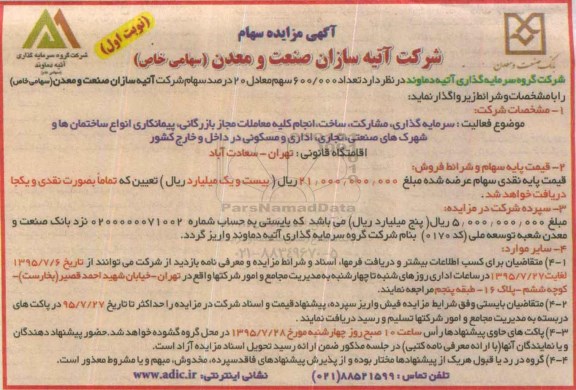 آگهی مزایده سهام
(نوبت اول)
شرکت آتیه سازان صنعت و معدن (سهامی خاص)
شرکت گروه سرمایه گذاری
آتیه دماوند
بانک صنعت و معدن
شرکت گروه سرمایه گذاری آتیه دماوند در نظر دارد تعداد ۶۰۰/۰۰۰ سهم معادل ۲۰ درصد سهام شرکت آتیه سازان صنعت و معدن (سهامی خاص)
را با مشخصات و شرایط زیر واگذار نماید:
۱- مشخصات شرکت:
موضوع فعالیت : سرمایه گذاری، مشارکت، ساخت، انجام کلیه معاملات مجاز بازرگانی، پیمانکاری انواع ساختمان ها و
شهرک های صنعتی، تجاری، اداری و مسکونی در داخل و خارج کشور
اقامتگاه قانونی : تهران - سعادت آباد
۲- قیمت پایه سهام و شرائط فروش:
قیمت پایه نقدی سهام عرضه شده مبلغ ۲۱,۰۰۰,۰۰۰,۰۰۰ ریال ( بیست و یک میلیارد ریال ) تعیین که تماماً بصورت نقدی و یکجا
دریافت خواهد شد.
۳- سپرده شرکت در مزایده:
مبلغ ۵,۰۰۰,۰۰۰,۰۰۰ ریال( پنج میلیارد ریال) می باشد که بایستی به حساب شماره ۰۲۰۰۰۰۰۰۷۱۰۰۲ نزد بانک صنعت و
معدن شعبه توسعه ملی (کد ۰۱۷۰) بنام شرکت گروه سرمایه گذاری آتیه دماوند واریز گردد.
۴- سایر موارد:
۴-۱) متقاضیان برای کسب اطلاعات بیشتر و دریافت فرمها، اسناد و شرائط مزایده و معرفی نامه بازدید از شرکت می توانند از تاریخ ۱۳۹۵/۷/۶
لغایت ۱۳۹۵/۷/۲۷ در ساعات اداری روزهای شنبه تا چهارشنبه به مدیریت مجامع و امور شرکتها واقع در تهران-خیابان شهید احمد قصیر(بخارست)-
کوچه ششم -پلاک ۱۶- طبقه پنجم مراجعه نمایند.
۴-۲) متقاضیان بایستی وفق شرایط مزایده فیش واریز سپرده، پیشنهاد قیمت و اسناد شرکت در مزایده را حداکثر تا تاریخ ۹۵/۷/۲۷ در پاکت های
دربسته به مدیریت مجامع و امور شرکتها تسلیم و رسید دریافت نمایند.
۴-۳) پاکت های حاوی پیشنهادها رأس ساعت ۱۰ صبح روز چهارشنبه مورخ ۱۳۹۵/۷/۲۸ در محل گروه گشوده خواهد شد. حضور پیشنهاد دهندگان
و یا نمایندگان آنها(با ارائه معرفی نامه کتبی) در جلسه مذکور ضمن ارائه رسید تحویل اسناد مزایده آزاد است.
۴-۴) گروه در رد یا قبول هریک از پیشنهادها مختار بوده و از پذیرش پیشنهادهای فاقد سپرده، مخدوش، مبهم و یا مشروط معذور است.
تلفن تماس : ۸۸۵۲۱۵۹۹(۰۲۱) نشانی اینترنتی: www.adic.ir